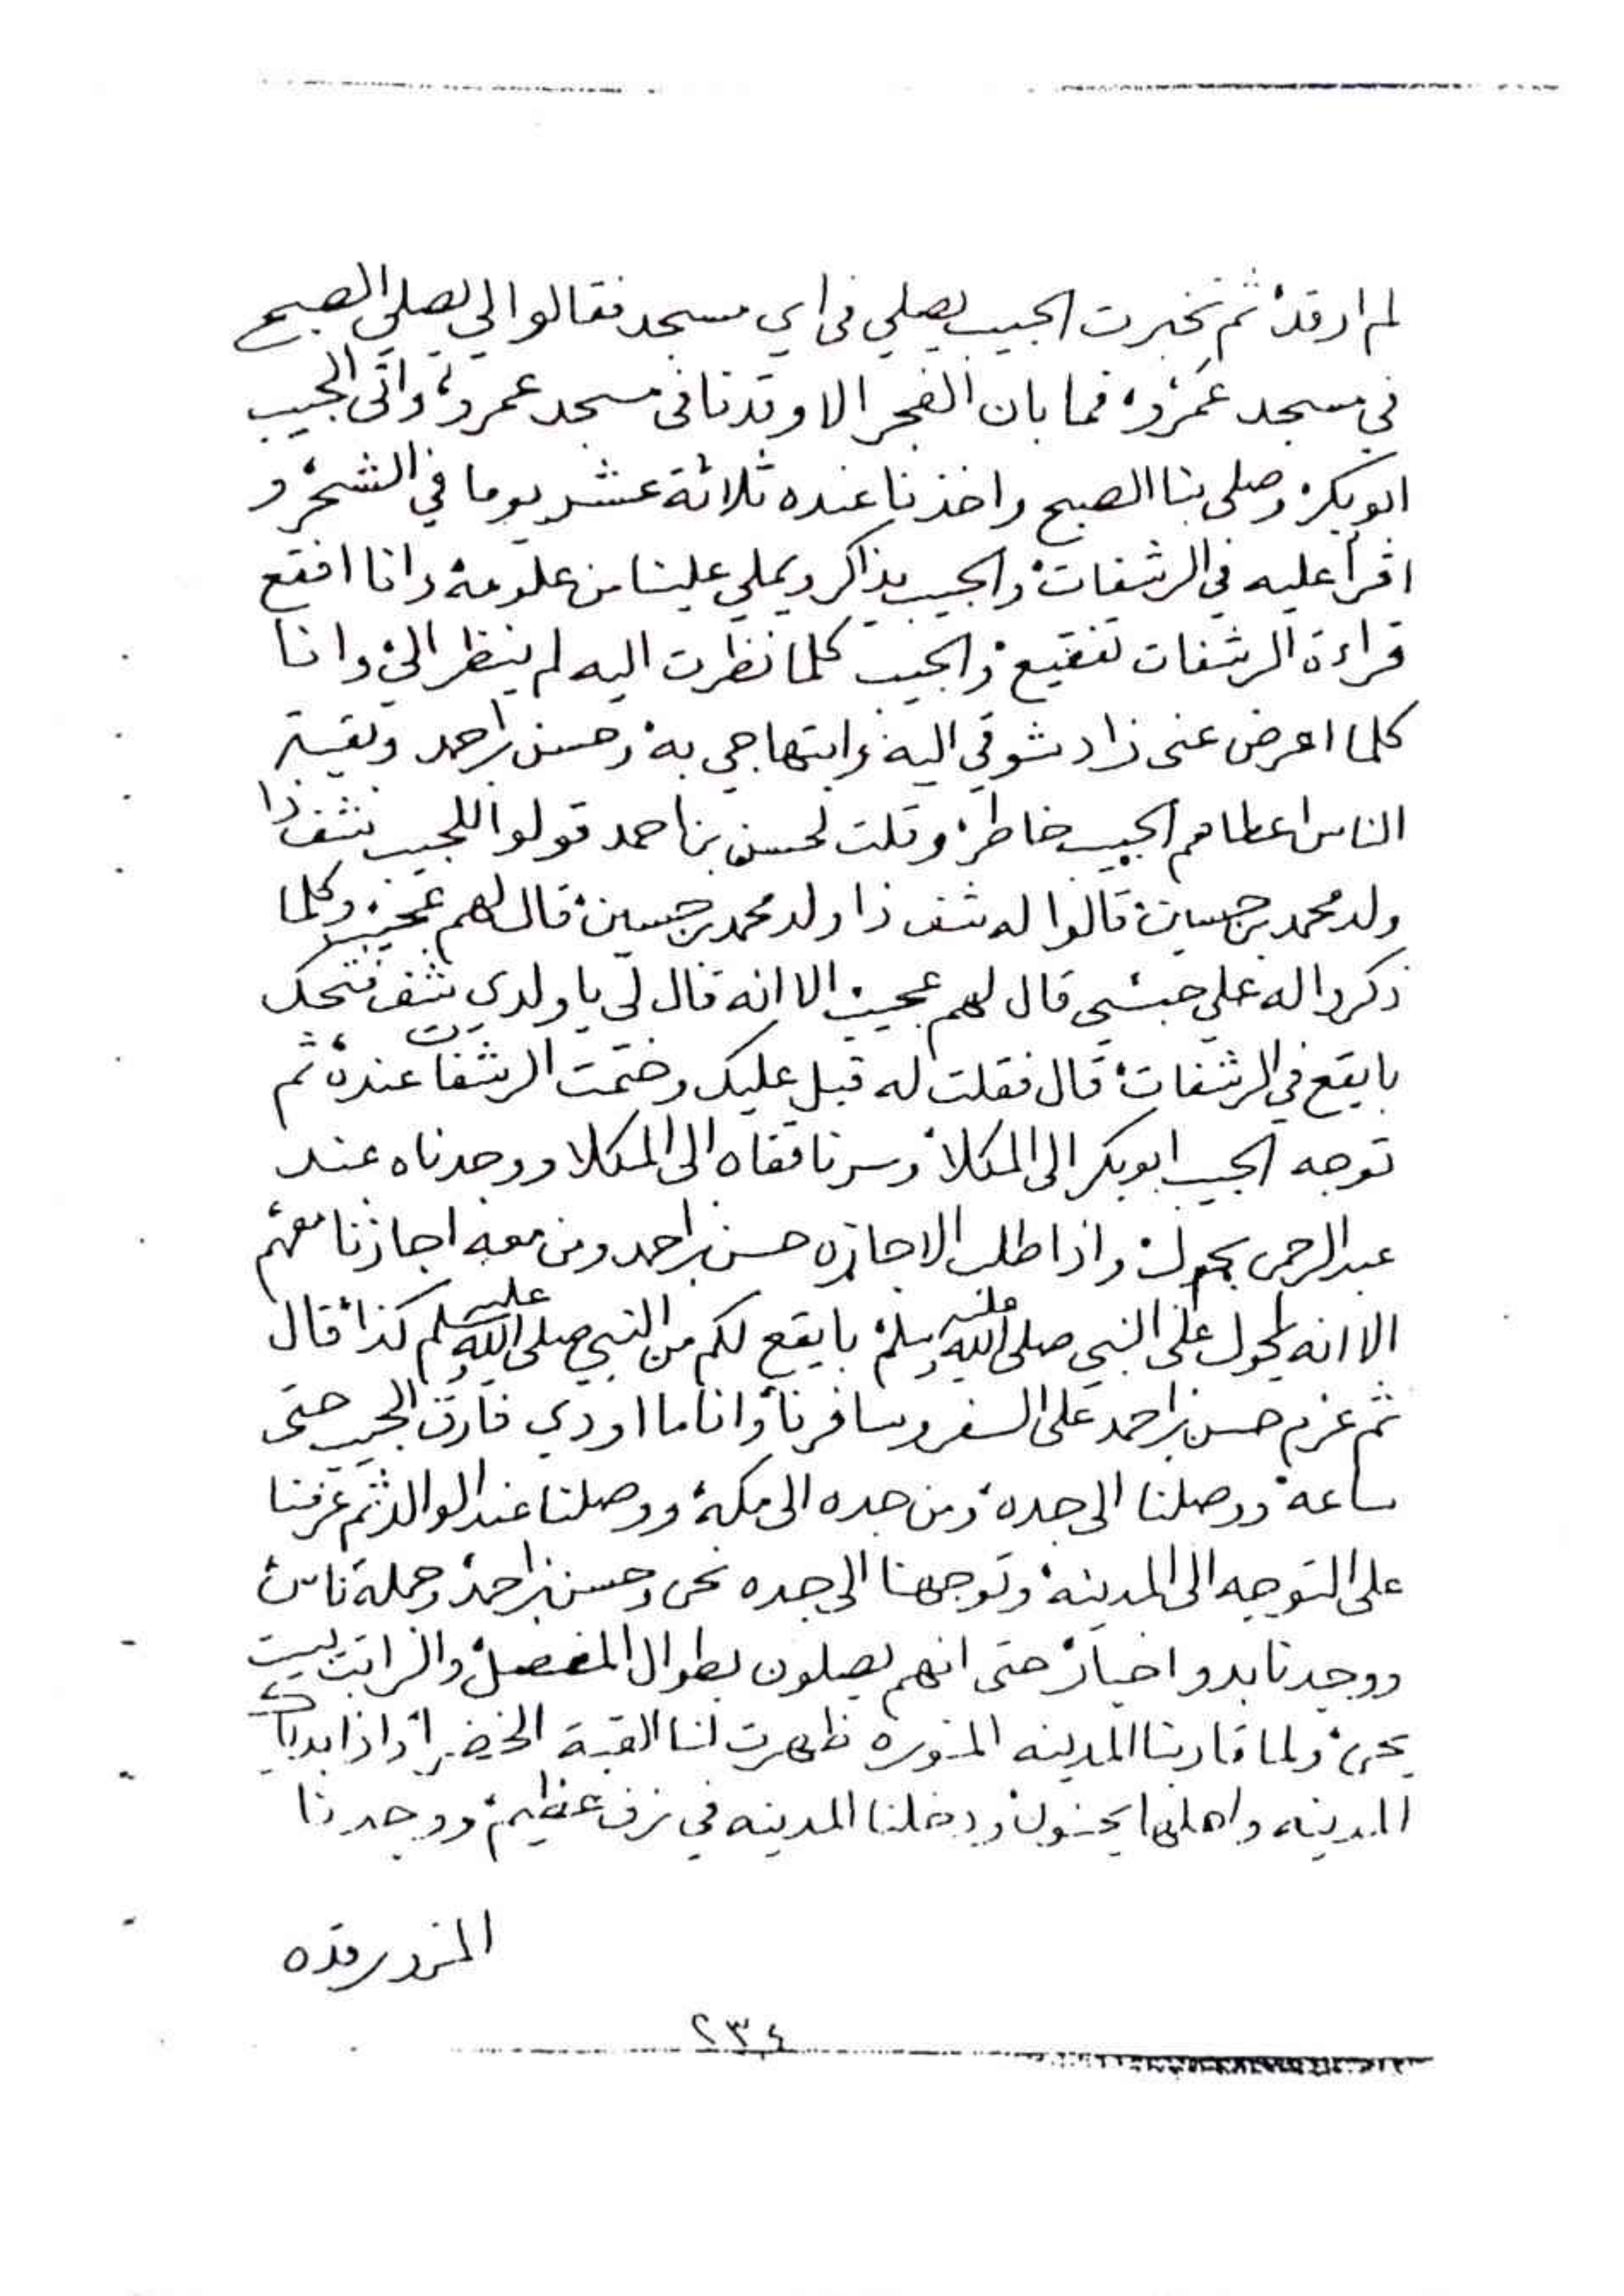 لم ارقد، ثم تخبرت الحبيب يصلي في اي مسجد فقالوا لي يصلي الصبح
في مسجد عَمْرو، فما بان الفجر الا وقدنا في مسجد عمرو، واتى الحبيب
ابوبكر، وصلى بنا الصبح واخذنا عنده ثلاثة عشر يوما في الشحر، و
اقرأ عليه في الرشفات، والحبيب يذاكر ويملي علينا من علومه، وانا افقع
قراءة الرشفات تفقيع، والحبيب كلما نظرت اليه لم ينظر اليّ، وانا
كلما اعرض عني زاد شوقي اليه، وابتهاجي به، وحسن بن احمد وبقية
الناس اعطاهم الحبيب خاطر، وقلت لحسن بن احمد قولوا للحبيب شف ذا
ولد محمد بن حسين، قالوا له شف ذا ولد محمد بن حسين، قال لهم عجيب، وكلما
ذكروا له علي حبشي قال لهم عجيب، الا انه قال لي يا ولدي شف فتحك
با يقع في الرشفات، قال فقلت له قبل عليك وختمت الرشفات عنده، ثم
توجه الحبيب ابوبكر الى المكلا، وسرنا قفاه الى المكلا ووجدناه عند
عبدالرحمن بحول، واذا طلب الاجازه حسن بن احمد ومن معه اجازنا معهم
الا انه يحول على النبي صلى الله عليه وسلم، با يقع لكم من النبي صلى الله عليه وسلم كذا، قال
ثم عزم حسن بن احمد على السفر وسافرنا، وانا ما اودي فارق الحبيب حتى
ساعة، ووصلنا الى جدة، ومن جده الى مكة، ووصلنا عند الوالد، ثم عزمنا
على التوجه الى المدينة، وتوجهنا الى جده نحن وحسن بن احمد، وجملة ناس،
ووجدنا بدو اخيار، حتى انهم يصلون بطوال المفصل، والراتب ليت
يحن، ولما قاربنا المدينه المنوره ظهرت لنا القبة الخضراء، واذا بديار
المدينه واهلها يحنون، ودخلنا المدينه في زف عظيم، ووجدنا
٢٣٤